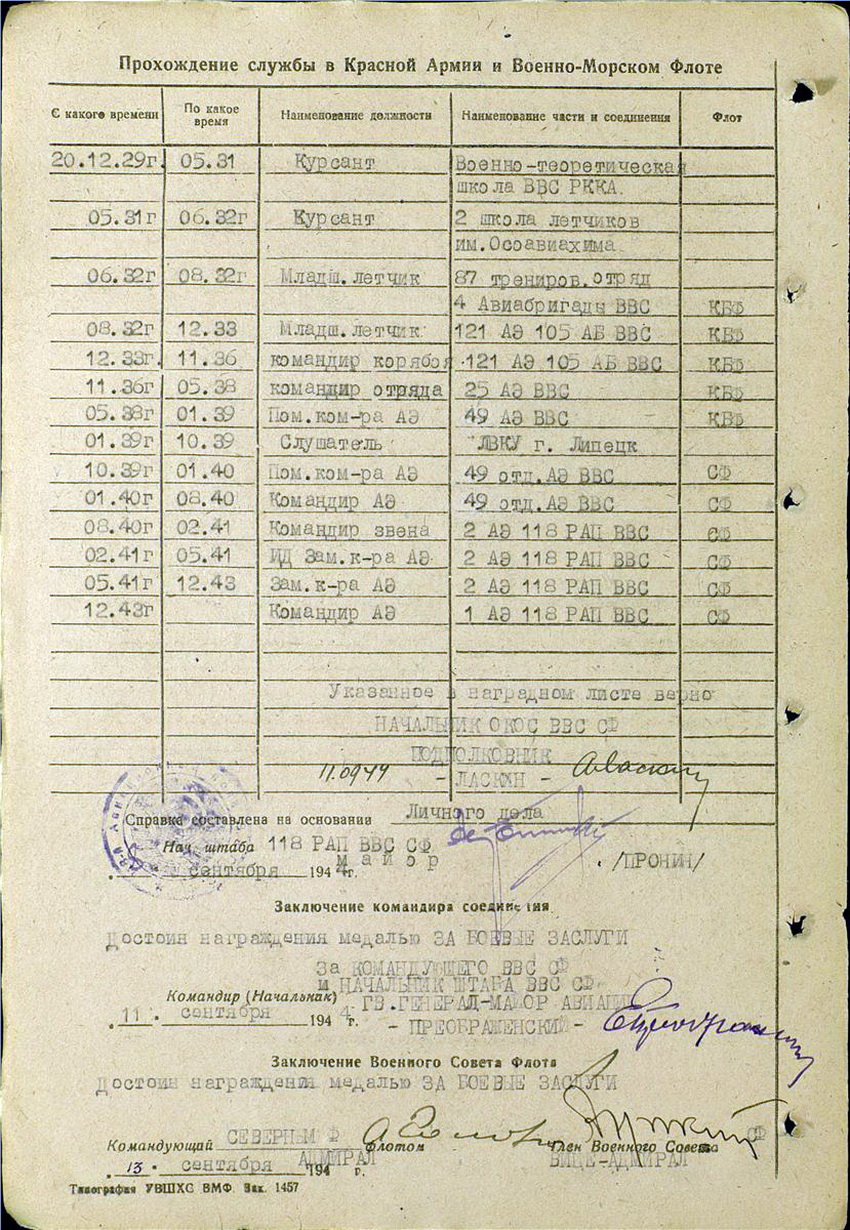 Прохождение службы в Красной Армии и Военно-Морском Флоте
С какого времени По какое время Наименование должности Наименование части и соединения Флот
20.12.29г. 05.31 Курсант Военно-теоретическая
школа ВВС РККА.
05.31г 06.32г Курсант 2 школа летчиков
им.Осоавиахима
06.32г 08.32г Младш.летчик 87 трениров.отряд
4 Авиабригады ВВС КБФ
08.32г 12.33 Младш.летчик 121 АЭ 105 АБ ВВС КБФ
12.33г. 11.36 командир корабоя 121 АЭ 105 АБ ВВС КБФ
11.36г 05.38 командир отряда 25 АЭ ВВС КБФ
05.38г 01.39 Пом.ком-ра АЭ 49 АЭ ВВС КБФ
01.39г 10.39 Слушатель ЛВКУ г. Липецк
10.39г 01.40 Пом.ком-ра АЭ 49 отд.АЭ ВВС СФ
01.40г 08.40 Командир АЭ 49 отд.АЭ ВВС СФ
08.40г 02.41 Командир звена 2 АЭ 118 РАП ВВС СФ
02.41г 05.41 ИД Зам.к-ра АЭ 2 АЭ 118 РАП ВВС СФ
05.41г 12.43 Зам.к-ра АЭ 2 АЭ 118 РАП ВВС СФ
12.43г Командир АЭ 1 АЭ 118 РАП ВВС СФ
Указанное в наградном листе верно
НАЧАЛЬНИК ОКОС ВВС СФ
ПОДПОЛКОВНИК
11.0944 - ЛАСКИН - АЛаскин
Справка составлена на основании Личного дела
Нач. штаба 118 РАП ВВС СФ
майор /ПРОНИН/
сентября 1944г.
Заключение командира соединения
Достоин награждения медалью ЗА БОЕВЫЕ ЗАСЛУГИ
За КОМАНДУЮЩЕГО ВВС СФ
и НАЧАЛЬНИК ШТАБА ВВС СФ
Командир (Начальник) ГВ.ГЕНЕРАЛ-МАЙОР АВИАЦИИ
"11" сентября 1944г. - ПРЕОБРАЖЕНСКИЙ -
Заключение Военного Совета Флота
Достоин награждения медалью ЗА БОЕВЫЕ ЗАСЛУГИ
Командующий СЕВЕРНЫМ Флотом Член Военного Совета СФ
АДМИРАЛ ВИЦЕ-АДМИРАЛ
"13" сентября 194 г.
Типография УВШХС ВМФ. Зак. 1457